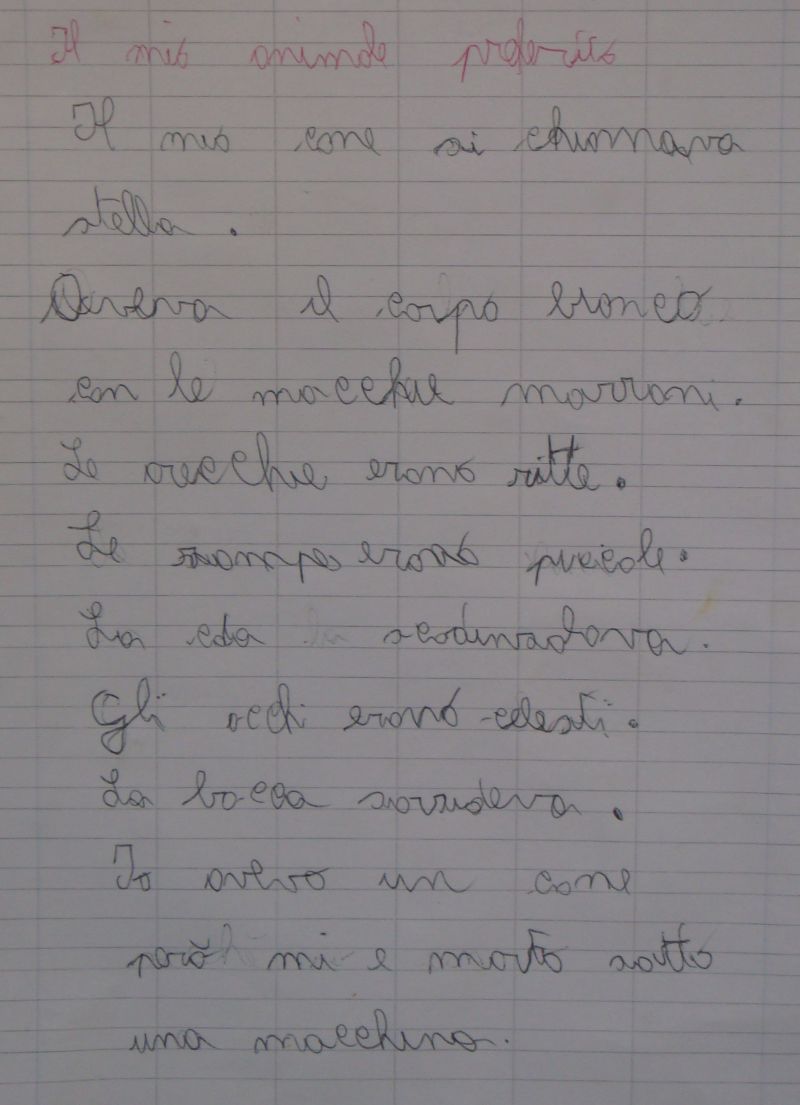 Il mio animale preferito
Il mio cane si chiamava
stella.
Aveva il corpo bianco
con le macchie marroni.
Le orecchie erano ritte.
Le zampe erano piccole.
La coda scodinzolava.
Gli occhi erano celesti.
La bocca sorrideva.
Io avevo un cane
però mi e morto sotto
una macchina.